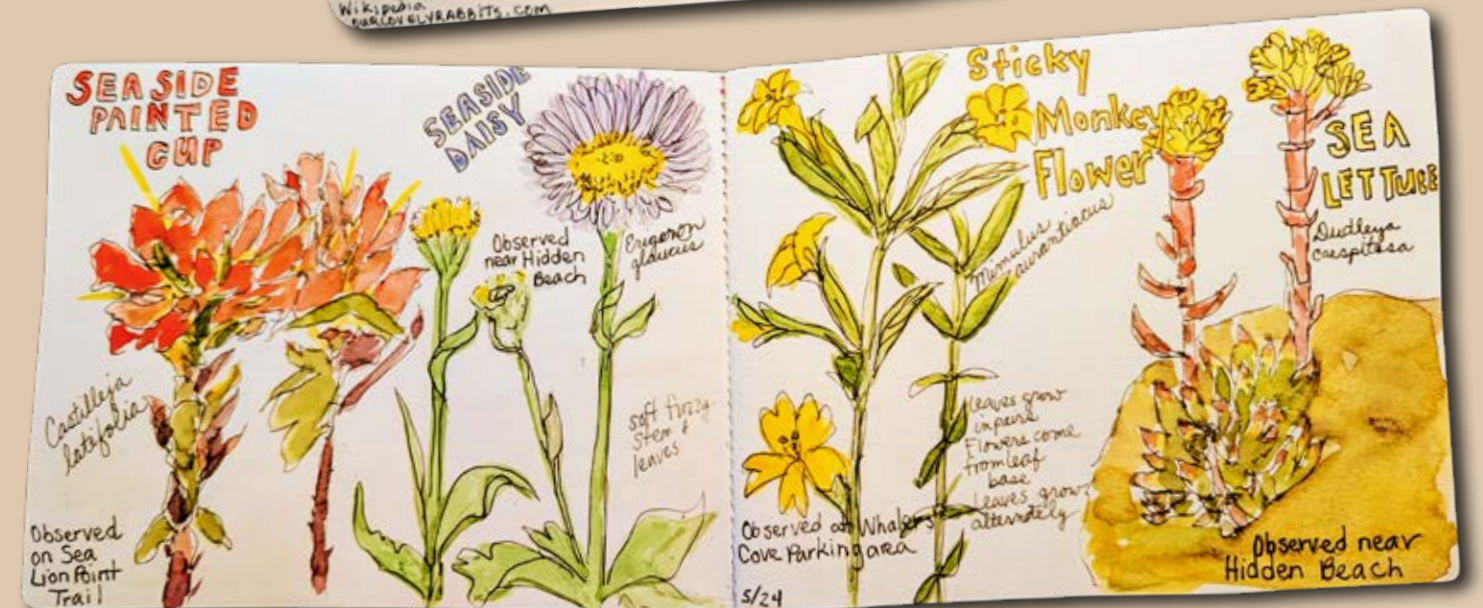 Wikipedia
OURLOVELYRABBITS.COM
SEASIDE
PAINTED
CUP
Castilleja
latifolia
Observed
on Sea
Lion Point
Trail
SEASIDE
DAISY
Observed
near Hidden
Beach
Erigeron
glaucus
soft fuzzy
stem &
leaves
Sticky
Monkey
Flower
Mimulus
aurantiacus
leaves grow
in pairs
Flowers come
from leaf
base
Leaves grow
alternately
Observed at Whalers
Cove Parking area
5/24
SEA
LETTUCE
Dudleya
caespitosa
Observed near
Hidden Beach